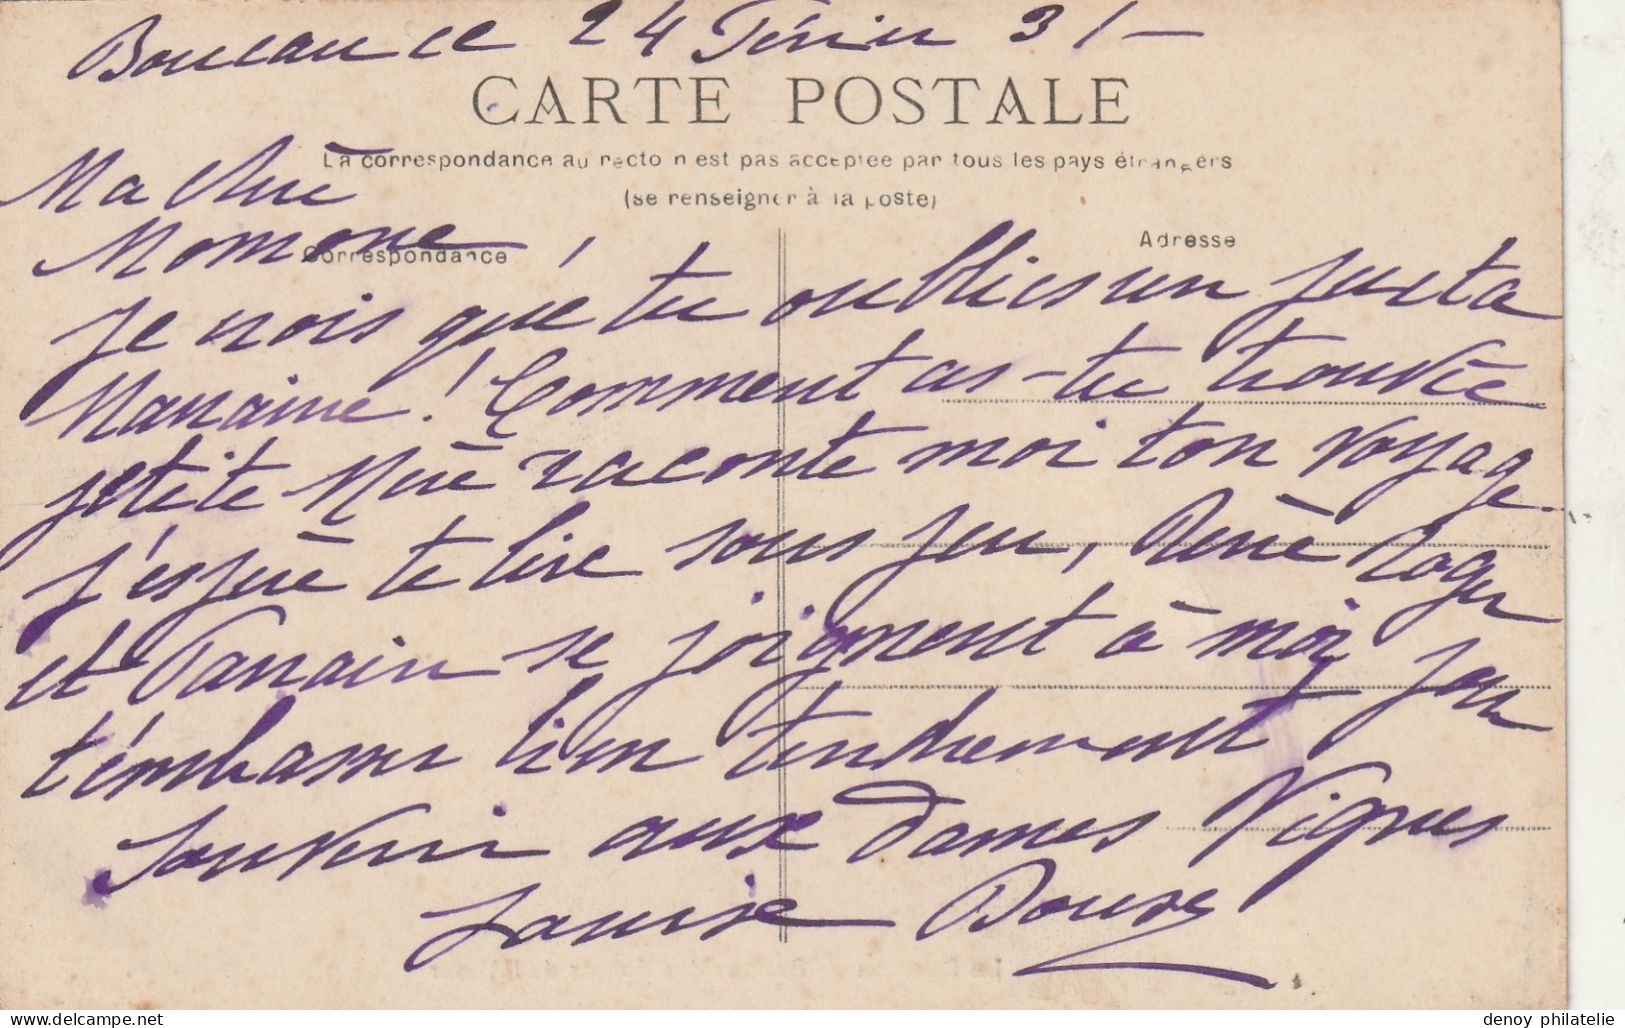 Boucau ce 24 Février 31-
CARTE POSTALE
La correspondance au recto n'est pas acceptée par tous les pays étrangers
(se renseigner à la poste)
Ma chère
Momone
Correspondance
Adresse
je vois que tu oublies un peu ta
Marraine! Comment as-tu trouvée
petite Mère raconte moi ton voyage
j'espère te lire sous peu, René Roger
et Parrain se joignent à moi pour
t'embrasser bien tendrement
Souvenir aux dames Vignes
Louise
denoy philatelie
delcampe.net